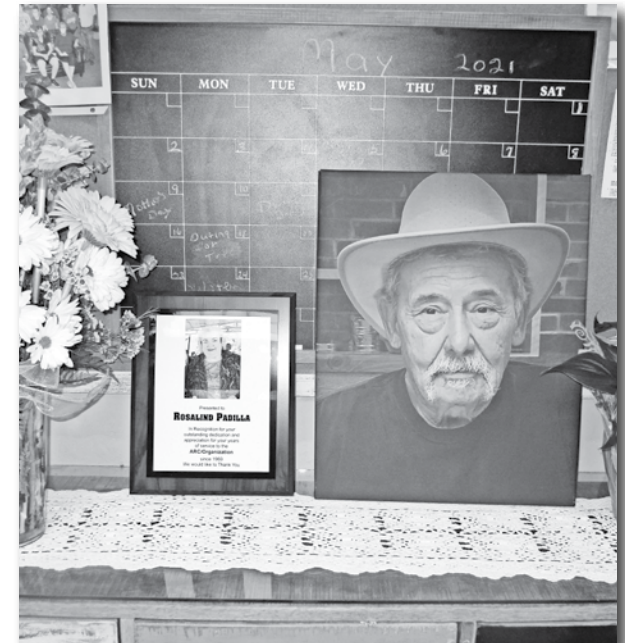 May 2021
SUN MON TUE WED THU FRI SAT
1
2 3 5 6 7 8
9 10
Mother's Day
16
Outing for
23 24
Presented to
ROSALIND PADILLA
In Recognition for your
outstanding dedication and
appreciation for your years
of service to the
ARC/Organization
since 1969
We would like to Thank You